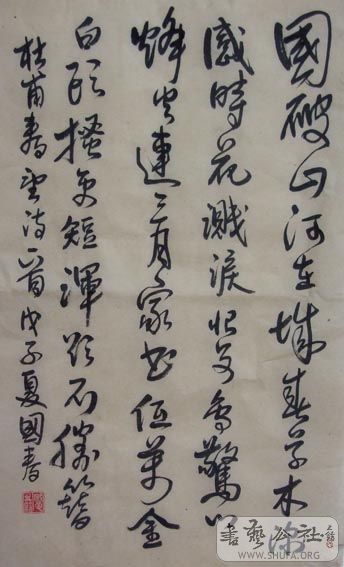 國破山河在城春草木深
感時花濺淚恨別鳥驚心
烽火連三月家書抵萬金
白頭搔更短渾欲不勝簪
杜甫春望詩一首戊子夏國春
書藝公社
WWW.SHUFA.ORG